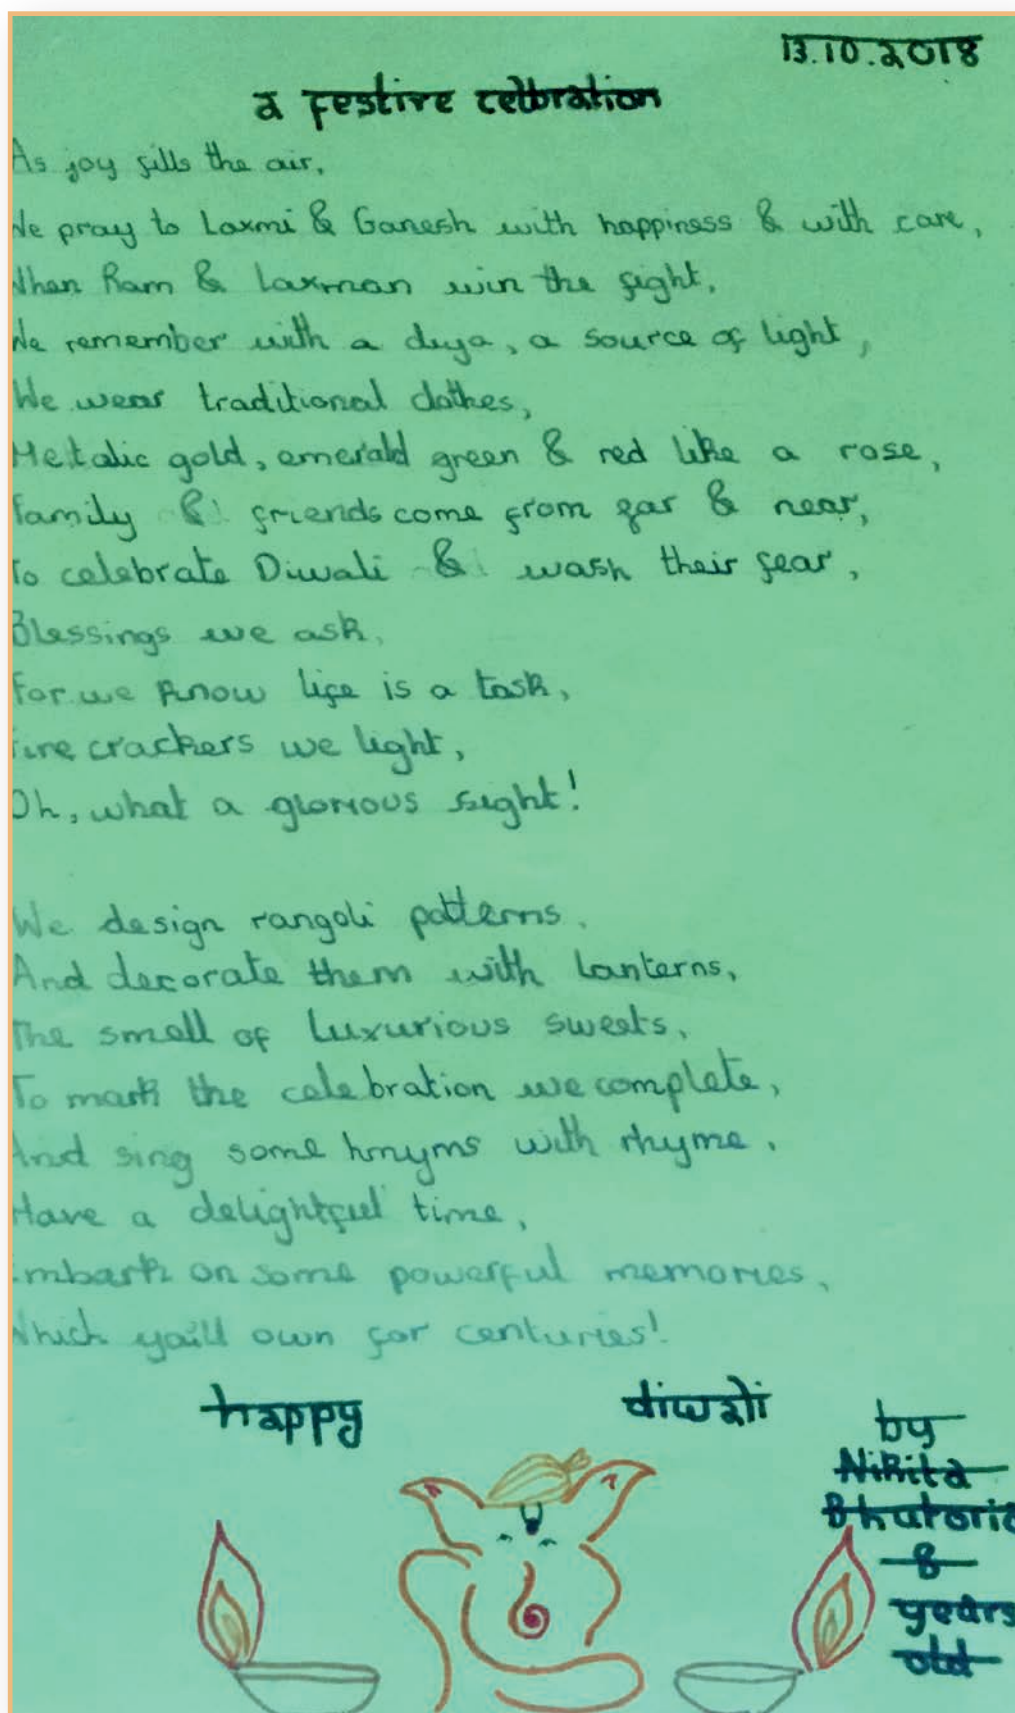 13.10.2018
a festive celbration
As joy fills the air,
We pray to Laxmi & Ganesh with happiness & with care,
When Ram & Laxman win the fight,
We remember with a diya, a source of light,
We wear traditional clothes,
Metalic gold, emerald green & red like a rose,
Family & friends come from far & near,
To celebrate Diwali & wash their fear,
Blessings we ask,
For we know life is a task,
Fire crackers we light,
Oh, what a glorious sight!
We design rangoli patterns,
And decorate them with lanterns,
The smell of luxurious sweets,
To mark the celebration we complete,
And sing some hmyms with rhyme,
Have a delightful time,
Embark on some powerful memories,
Which you'll own for centuries!
happy diwali
by
Nikita
Bhutoria
8
years
old